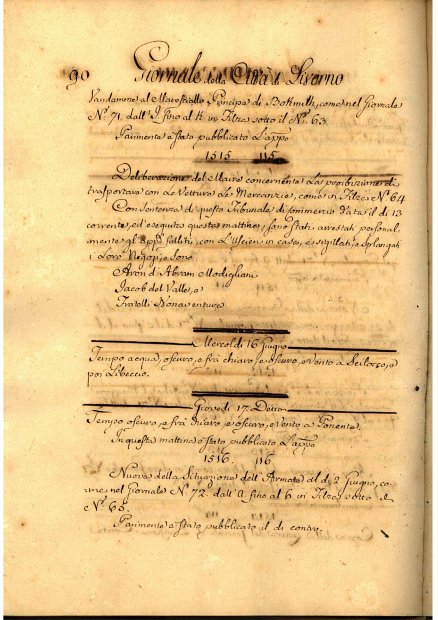 90 Giornale della Città di Livorno
Vandamme al Maresciallo Principe di Eckmülh, come nel Giornale
N.° 71, dall' I fino al K in Filza sotto il N.° 63.
Parimente è stato pubblicato L'appo
1515 115
Deliberazione del Maire concernente La proibizione di
trasportare con Le Vetture Le Mercanzie, come in Filza N.° 64
Con sentenza di questo Tribunale di Commercio data il dì 13
corrente, ed eseguita questa mattina, sono stati arrestati personal-
mente gl'appi falliti, con L'Uscien in casa, e sigillati, e
i Loro Negozi, e sono
Aron d'Abram Modigliani
Jacob del Valle, e
Fratelli Bonaventura
Mercoldi 16 Giugno
Tempo acqua, oscuro, e frà chiaro, e oscuro, e vento a Scilocco, e
poi Libeccio.
Giovedi 17. Detto
Tempo oscuro, e frà chiaro, e oscuro, e vento a Ponente.
In questa mattina è stato pubblicato L'appo
1516 116
Nuova della Situazione dell'Armata del dì 2 Giugno, co-
me nel Giornale N.° 72. dall' a fino al b in Filza sotto il
N.° 65.
Parimente è stato pubblicato il di contro.